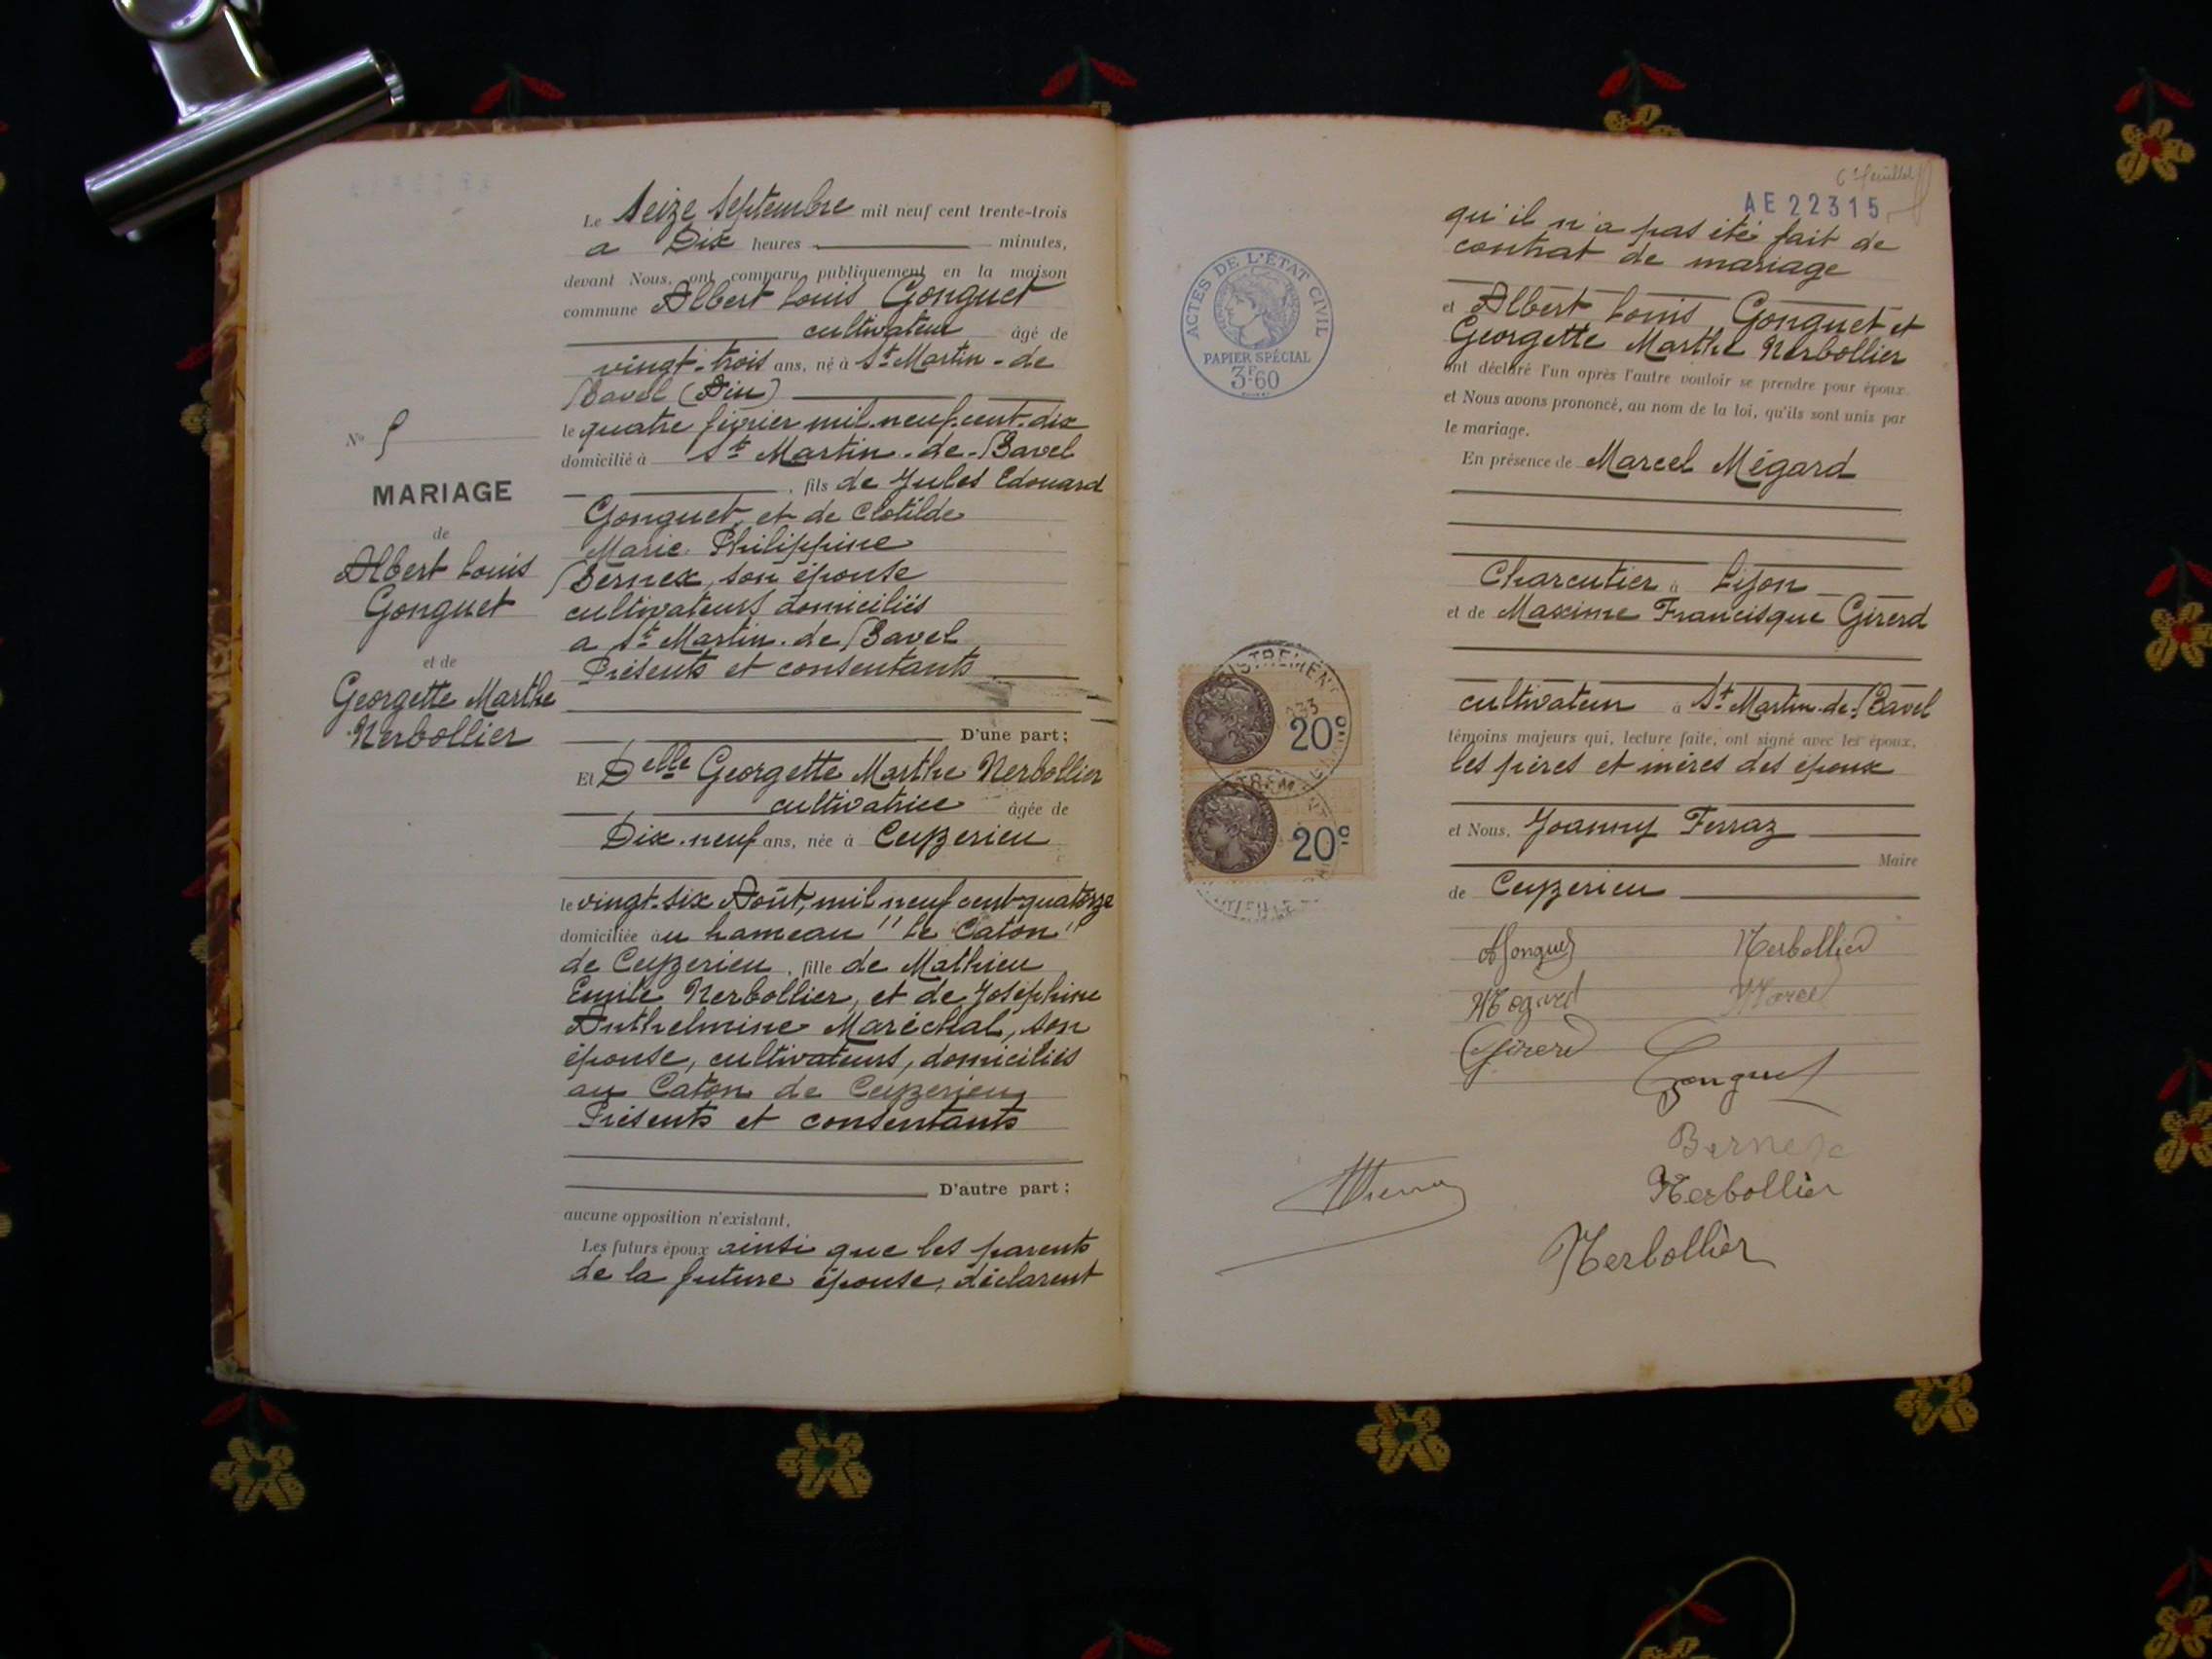 N° 5
MARIAGE
de
Albert Louis
Gonguet
et de
Georgette Marthe
Nerbollier
Le Seize Septembre mil neuf cent trente-trois
a Dix heures minutes,
devant Nous, ont comparu publiquement en la maison
commune Albert Louis Gonguet
cultivateur âgé de
vingt-trois ans, né à St Martin-de
Bavel (Ain)
le quatre février mil-neuf-cent-dix
domicilié à St Martin-de-Bavel
, fils de Jules Edouard
Gonguet, et de Clotilde
Marie Philippine
Bernex, son épouse
cultivateurs domiciliés
a St Martin-de-Bavel
Présents et consentants
D'une part;
Et Delle Georgette Marthe Nerbollier
cultivatrice âgée de
Dix-neuf ans, née à Ceyzerieu
le vingt-six Août, mil neuf cent quatorze
domiciliée au hameau "Le Caton"
de Ceyzerieu, fille de Mathieu
Emile Nerbollier, et de Joséphine
Anthelmine Maréchal, son
épouse, cultivateurs, domiciliés
au Caton de Ceyzerieu
Présents et consentants
D'autre part;
aucune opposition n'existant,
Les futurs époux ainsi que les parents
de la future épouse, déclarent
6e feuillet
AE 22315
qu'il n'a pas été fait de
contrat de mariage
et Albert Louis Gonguet et
Georgette Marthe Nerbollier
ont déclaré l'un après l'autre vouloir se prendre pour époux
et Nous avons prononcé, au nom de la loi, qu'ils sont unis par
le mariage.
En présence de Marcel Mégard
Charcutier à Lyon
et de Maxime Francisque Girerd
cultivateur à St Martin-de-Bavel
témoins majeurs qui, lecture faite, ont signé avec les époux,
les pères et mères des époux
et Nous, Joanny Ferraz
Maire
de Ceyzerieu
AGonguet Nerbollier
Mégard Marcel
Girerd
Gonguet
Bernex
Nerbollier
Nerbollier
ACTES DE L'ÉTAT CIVIL
PAPIER SPÉCIAL
3F60
20c
20c